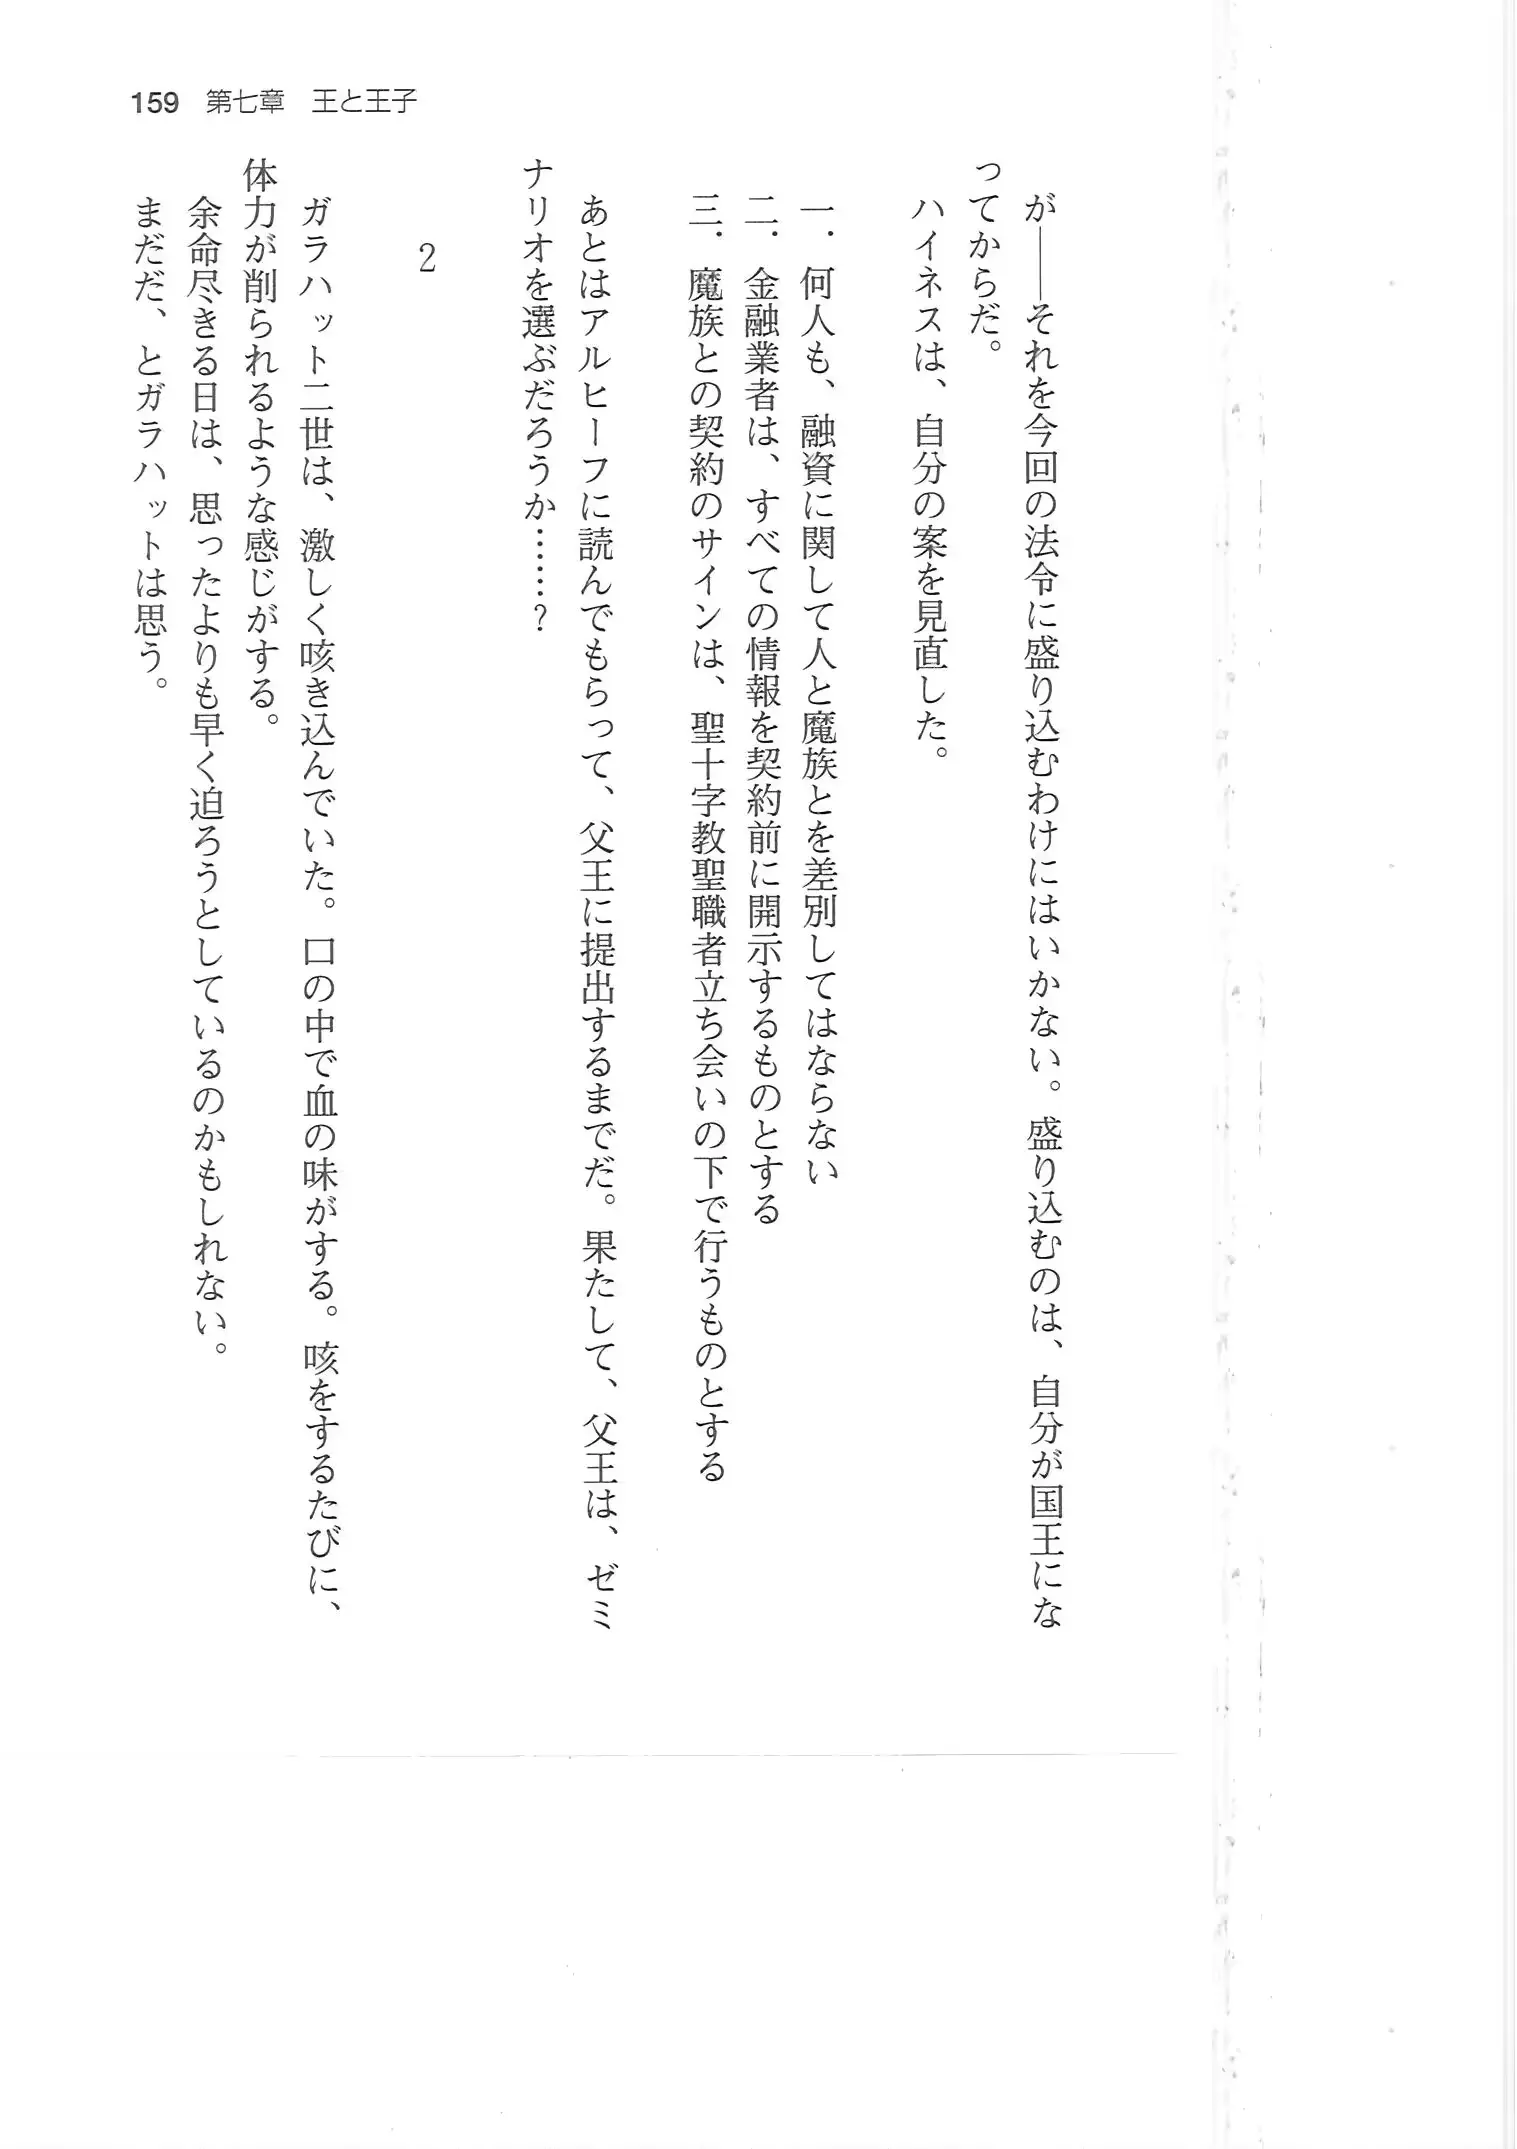 159 第七章 王と王子
が――それを今回の法令に盛り込むわけにはいかない。盛り込むのは、自分が国王にな
ってからだ。
ハイネスは、自分の案を見直した。
一．何人も、融資に関して人と魔族とを差別してはならない
二．金融業者は、すべての情報を契約前に開示するものとする
三．魔族との契約のサインは、聖十字教聖職者立ち会いの下で行うものとする
あとはアルヒーフに読んでもらって、父王に提出するまでだ。果たして、父王は、ゼミ
ナリオを選ぶだろうか……？
2
ガラハット二世は、激しく咳き込んでいた。口の中で血の味がする。咳をするたびに、
体力が削られるような感じがする。
余命尽きる日は、思ったよりも早く迫ろうとしているのかもしれない。
まだだ、とガラハットは思う。